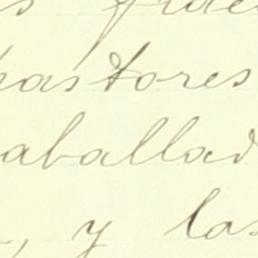 pastores
aballad
, y las